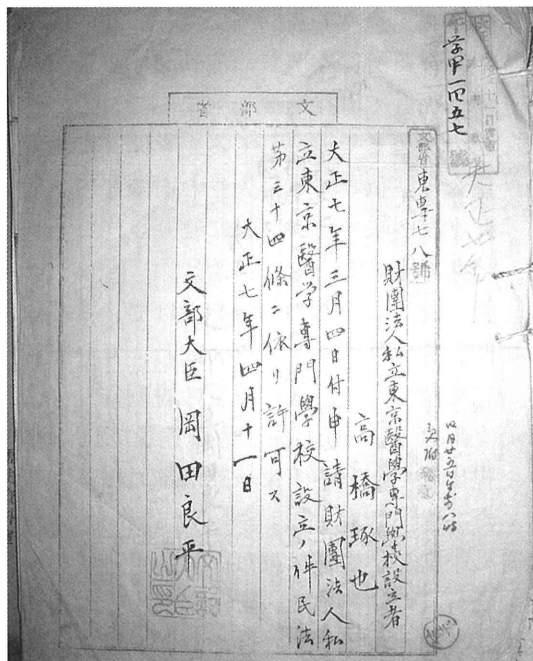 学甲一四五七
文部省
文部省東専七八號
財團法人私立東京醫學専門學校設立者
高橋琢也
大正七年三月四日付申請財團法人私
立東京醫学専門學校設立ノ件民法
第三十四條ニ依リ許可ス
大正七年四月十一日
文部大臣 岡田良平